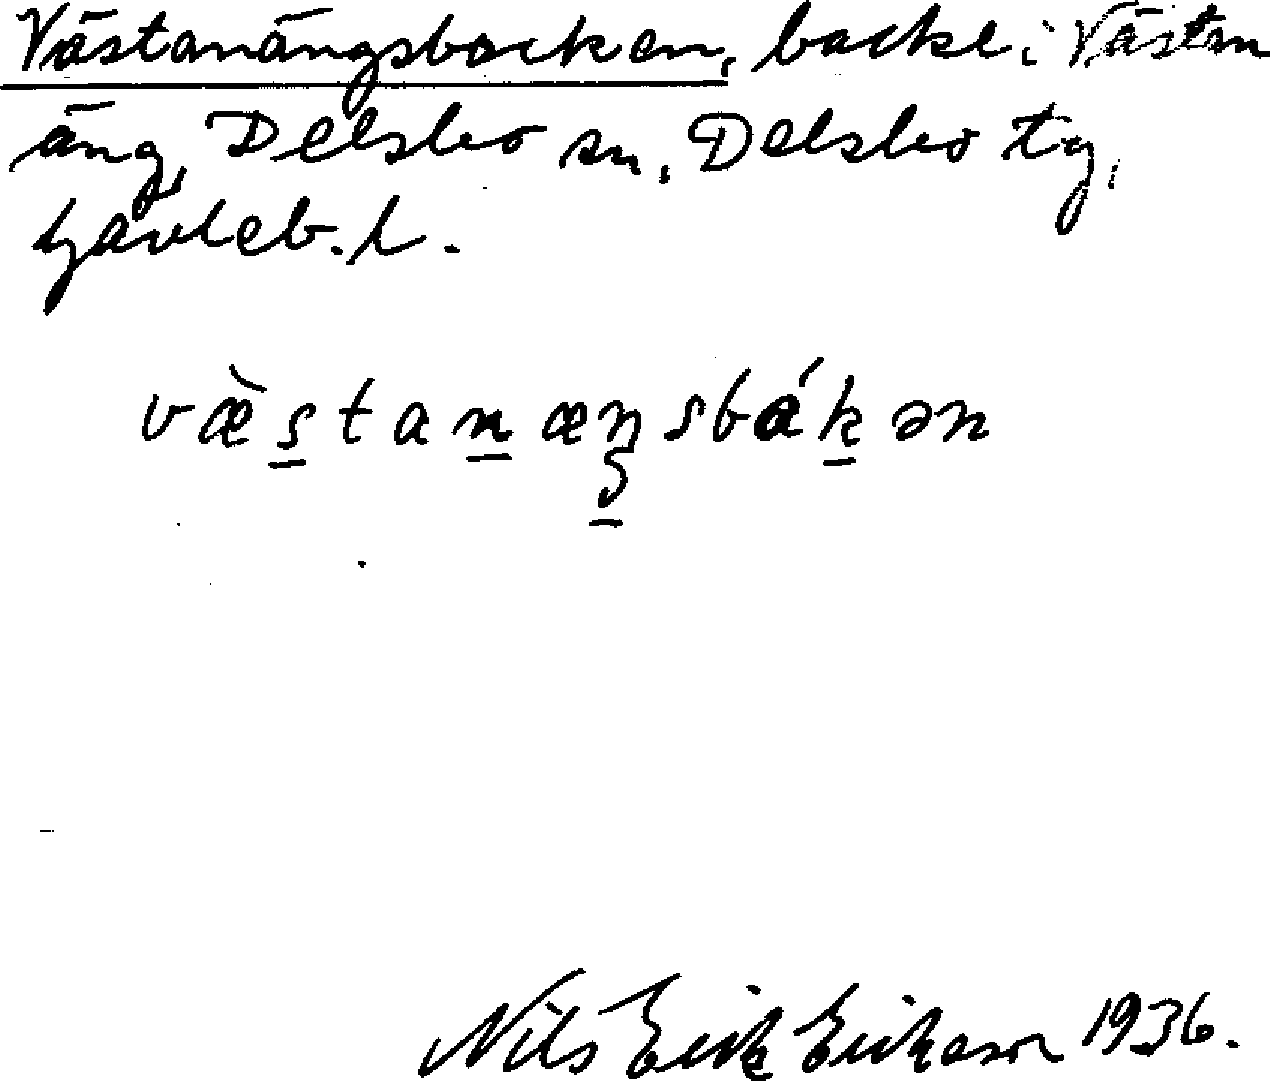 Västanängsbacken, backe i Västan
äng, Delsbo sn, Delsbo tg,
Gävleb. l.
væ̀s̲tan̲æŋ̲sbák̲ən
Nils Erik Erikson 1936.